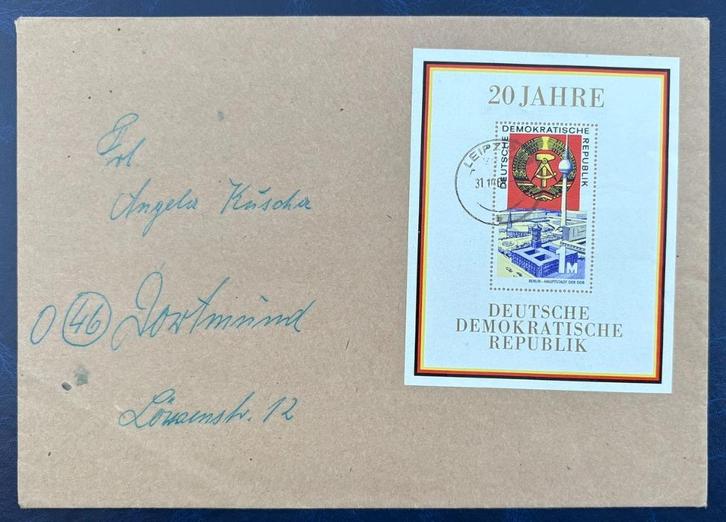 Frl.
Angela Kuscha
O (46) Dortmund
Löwenstr. 12
20 JAHRE
DEUTSCHE DEMOKRATISCHE REPUBLIK
LEIPZ
31.10
1 M
BERLIN - HAUPTSTADT DER DDR
DEUTSCHE
DEMOKRATISCHE
REPUBLIK